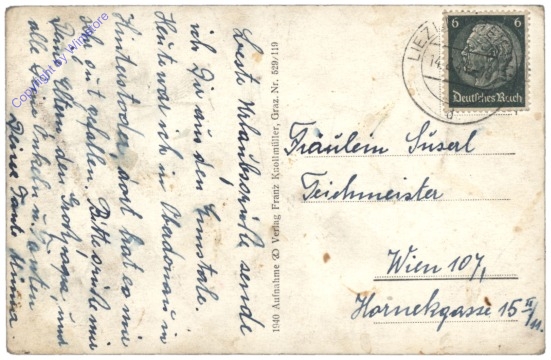 Beste Urlaubsgrüße sende
ich Dir aus dem Ennstale.
Heute war ich in Oberdonau in
Hinterstoder, dort hat es mir
sehr gut gefallen. Bitte grüße mir
Deine Eltern, den Großpapa, und
alle Deine Onkeln u. Tanten
Deine Tante Minna
1940 Aufnahme Verlag Franz Knollmüller, Graz. Nr. 529/119
6 6
Deutsches Reich
LIEZ
14.
d
Fräulein Suserl
Teichmeister
Wien 107,
Hornekgasse 15 II/11.
Copyright by Winstore